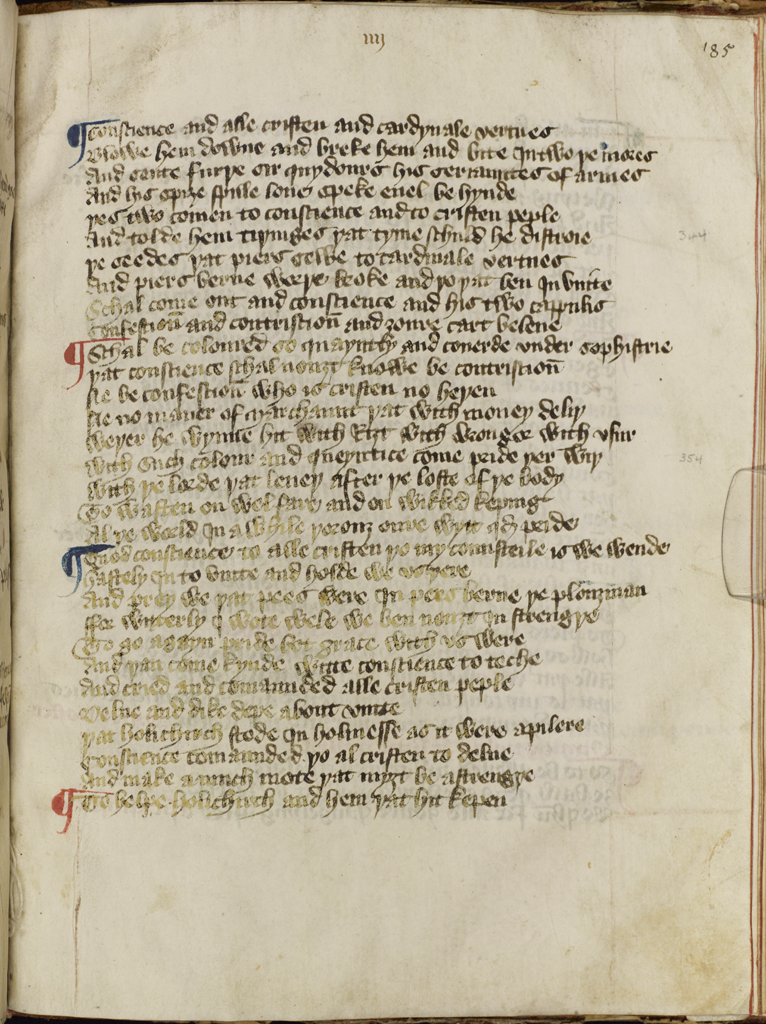 iiij
185
Conscience and alle cristen and cardynale vertues
Blowe hem downe and breke hem and bite Intwo þe mores
And sente furþe sir quydours his seriauntes of armes
And his spize spille loue speke euel be hynde
þes two comen to conscience and to cristen peple
And tolde hem tiþinges þat tyme schuld he distroie
344
þe seedes þat piers sewe to cardinale vertues
And piers berne weeþe broke and þo þat ben In vnite
Schal come out and conscience and his two cappulis
Confession and contriscion and zoure cart beleue
Schal be coloured so quayntly and couerde vnder sophistrie
þat conscience schal nouzt knowe be contriscion
Ne be confession who is cristen no heþen
Ne no maner of marchaunt þat with money deliþ
Weþer he wynne hit with Rizt with wronge or with vsur
With such colour and queyntice come pride þer wiþ
354
With þe lorde þat leueþ after þe loste of þe body
To wasten on welfare and on wikked keping
Al þe world In a while þorouz oure wytt qd pride
Quod conscience to alle cristen þo my counseile is we wende
Hastely In to vnite and holde we vs þere
And prey we þat pees were In pers berne þe plouzman
For witterly I wote wele we ben nouzt In strengþe
To go agayn pride bot grace with vs were
And þan come kynde witte conscience to teche
And cried and comaunded alle cristen peple
Delue and dike depe about vnite
þat holichirch stode In holinesse as it were a pilere
Conscience comaunded þo al cristen to delue
And make a much mote þat myzt be a strengþe
To helpe holichirch and hem þat hit kepen